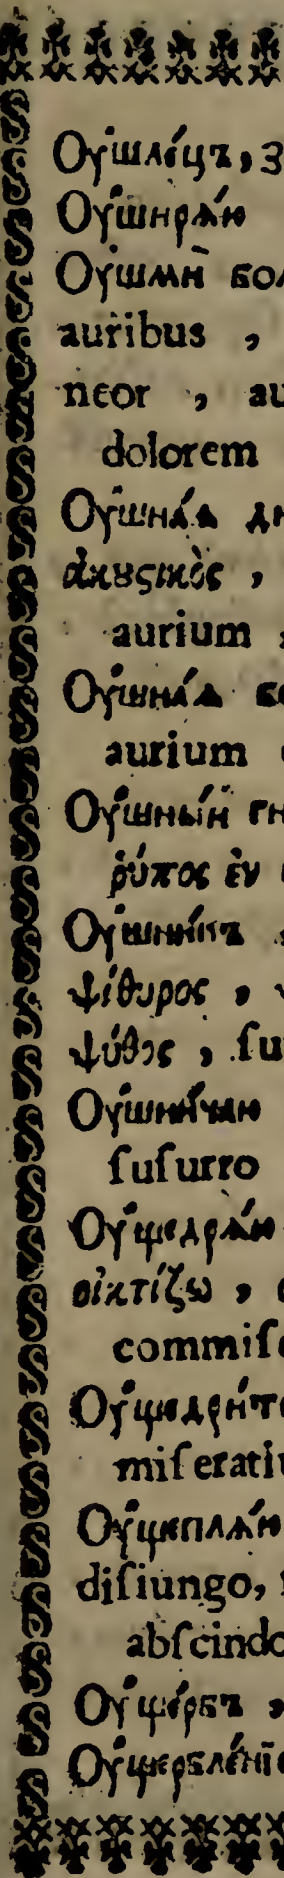 Оу҆шлéцъ, з
Оу҆ширѧ́ю
Оу҆шмѝ бол
auribus ,
neor , au
dolorem
Оу҆шнáѧ ди
ἀκȣϛικὸς ,
aurium ,
Оу҆шнáѧ бо
aurium
Оу҆шны́й гн
ῥύπος ἐν
Оу҆шни́къ ,
ψίθυρος ,
ψύθος , ſu
Оу҆шни́чаю
ſuſurro
Оу҆щедрѧ́ю
οἰκτίζω ,
commiſe
Оу҆щедри́те
miſerati
Оу҆щеплѧ́ю
diſiungo,
abſcindo
Оу҆ще́рбъ ,
Оу҆щербле́нїе